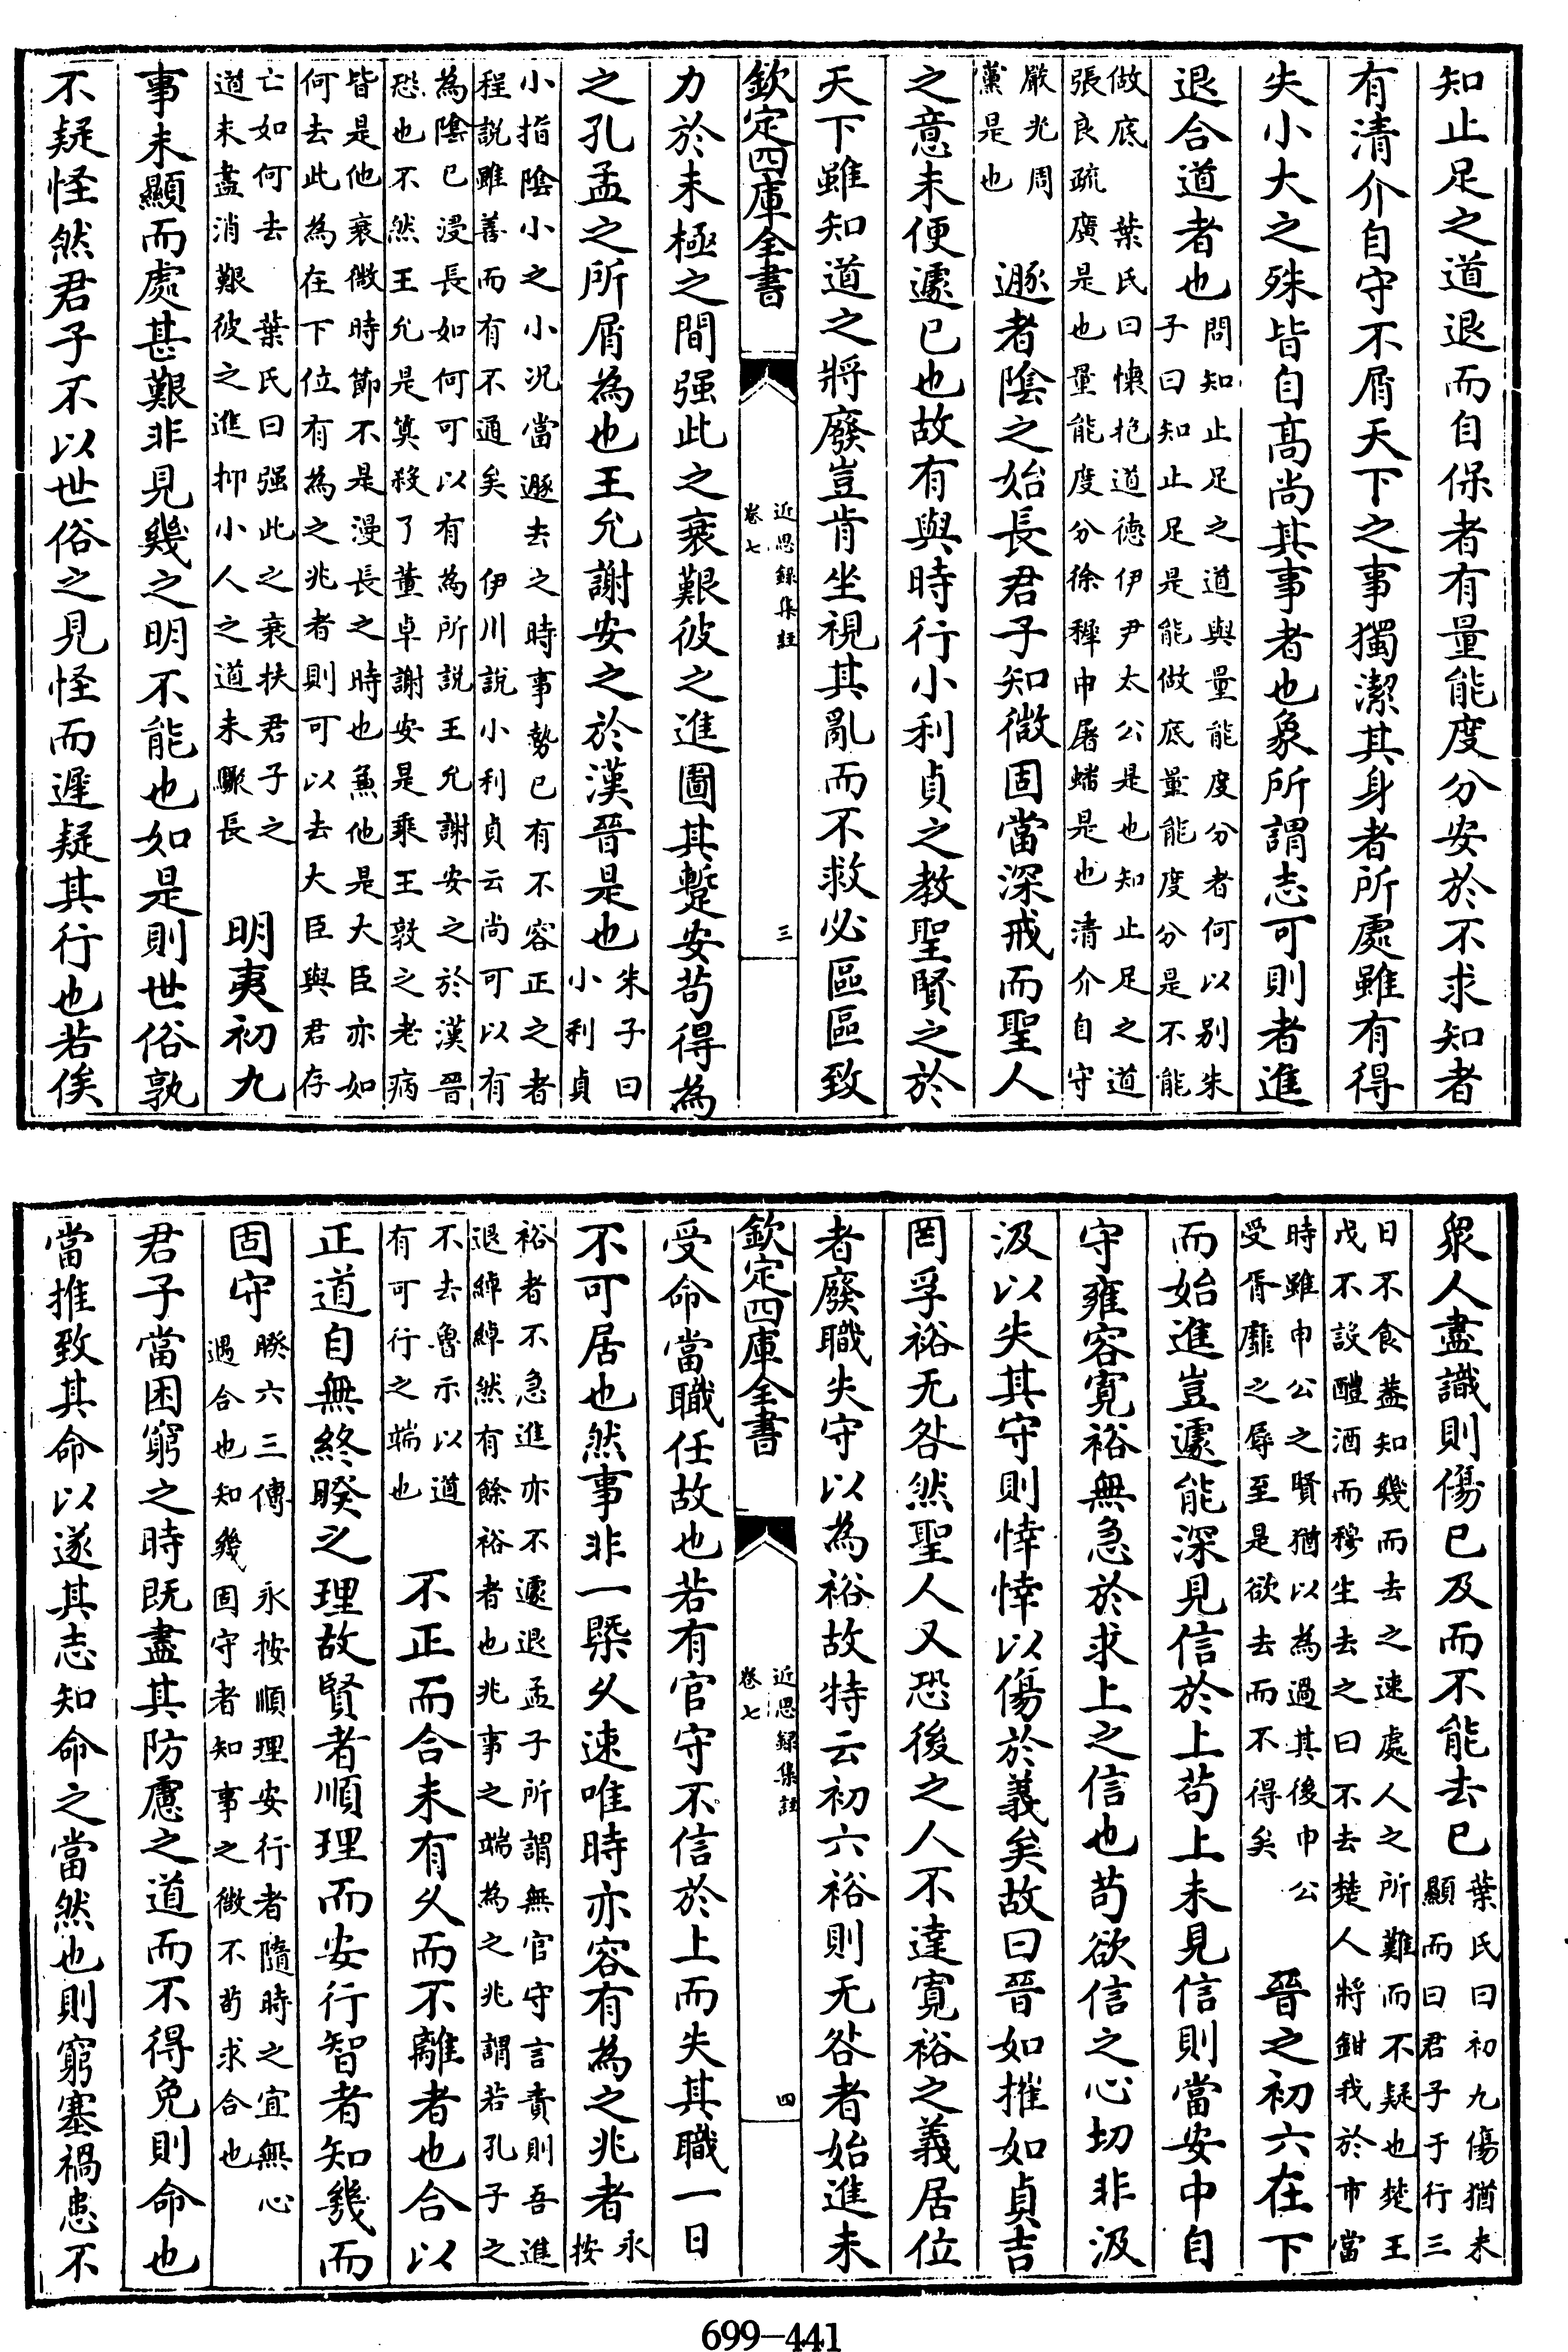 知止足之道退而自保者有量能度分安於不求知者
有清介自守不屑天下之事獨潔其身者所處雖有得
失小大之殊皆自髙尚其事者也象所謂志可則者進
退合道者也問知止足之道與量能度分者何以别朱
子曰知止足是能做底量能度分是不能
做底　葉氏曰懐抱道徳伊尹太公是也知止足之道
張良疏廣是也量能度分徐穉申屠蟠是也清介自守
嚴光周
黨是也
遯者隂之始長君子知微固當深戒而聖人
之意未便遽已也故有與時行小利貞之教聖賢之於
天下雖知道之將廢豈肯坐視其亂而不救必區區致
欽定四庫全書
近思録集註
卷七
三
力於未極之間强此之衰艱彼之進圖其蹔安茍得為
之孔孟之所屑為也王允謝安之於漢晉是也朱子曰
小利貞
小指隂小之小况當遯去之時事勢已有不容正之者
程説雖善而有不通矣　伊川説小利貞云尚可以有
為隂已浸長如何可以有為所説王允謝安之於漢晉
恐也不然王允是筭殺了董卓謝安是乘王敦之老病
皆是他衰微時節不是漫長之時也兼他是大臣亦如
何去此為在下位有為之兆者則可以去大臣與君存
亡如何去　葉氏曰强此之衰扶君子之
道未盡消艱彼之進抑小人之道未驟長
明夷初九
事未顯而處甚艱非見幾之明不能也如是則世俗孰
不疑怪然君子不以世俗之見怪而遲疑其行也若俟
衆人盡識則傷已及而不能去已葉氏曰初九傷猶未
顯而曰君子于行三
日不食葢知幾而去之速處人之所難而不疑也楚王
戊不設醴酒而穆生去之曰不去楚人將鉗我於市當
時雖申公之賢猶以為過其後申公
受胥靡之辱至是欲去而不得矣
晉之初六在下
而始進豈遽能深見信於上茍上未見信則當安中自
守雍容寛裕無急於求上之信也茍欲信之心切非汲
汲以失其守則悻悻以傷於義矣故曰晉如摧如貞吉
罔孚裕无咎然聖人又恐後之人不達寛裕之義居位
者廢職失守以為裕故特云初六裕則无咎者始進未
欽定四庫全書
近思録集註
卷七
四
受命當職任故也若有官守不信於上而失其職一日
不可居也然事非一槩久速唯時亦容有為之兆者永
按
裕者不急進亦不遽退孟子所謂無官守言責則吾進
退綽綽然有餘裕者也兆事之端為之兆謂若孔子之
不去魯示以道
有可行之端也
不正而合未有久而不離者也合以
正道自無終睽之理故賢者順理而安行智者知幾而
固守睽六三傳　永按順理安行者隨時之宜無心
遇合也知幾固守者知事之微不茍求合也
君子當困窮之時既盡其防慮之道而不得免則命也
當推致其命以遂其志知命之當然也則窮塞禍患不
699-441